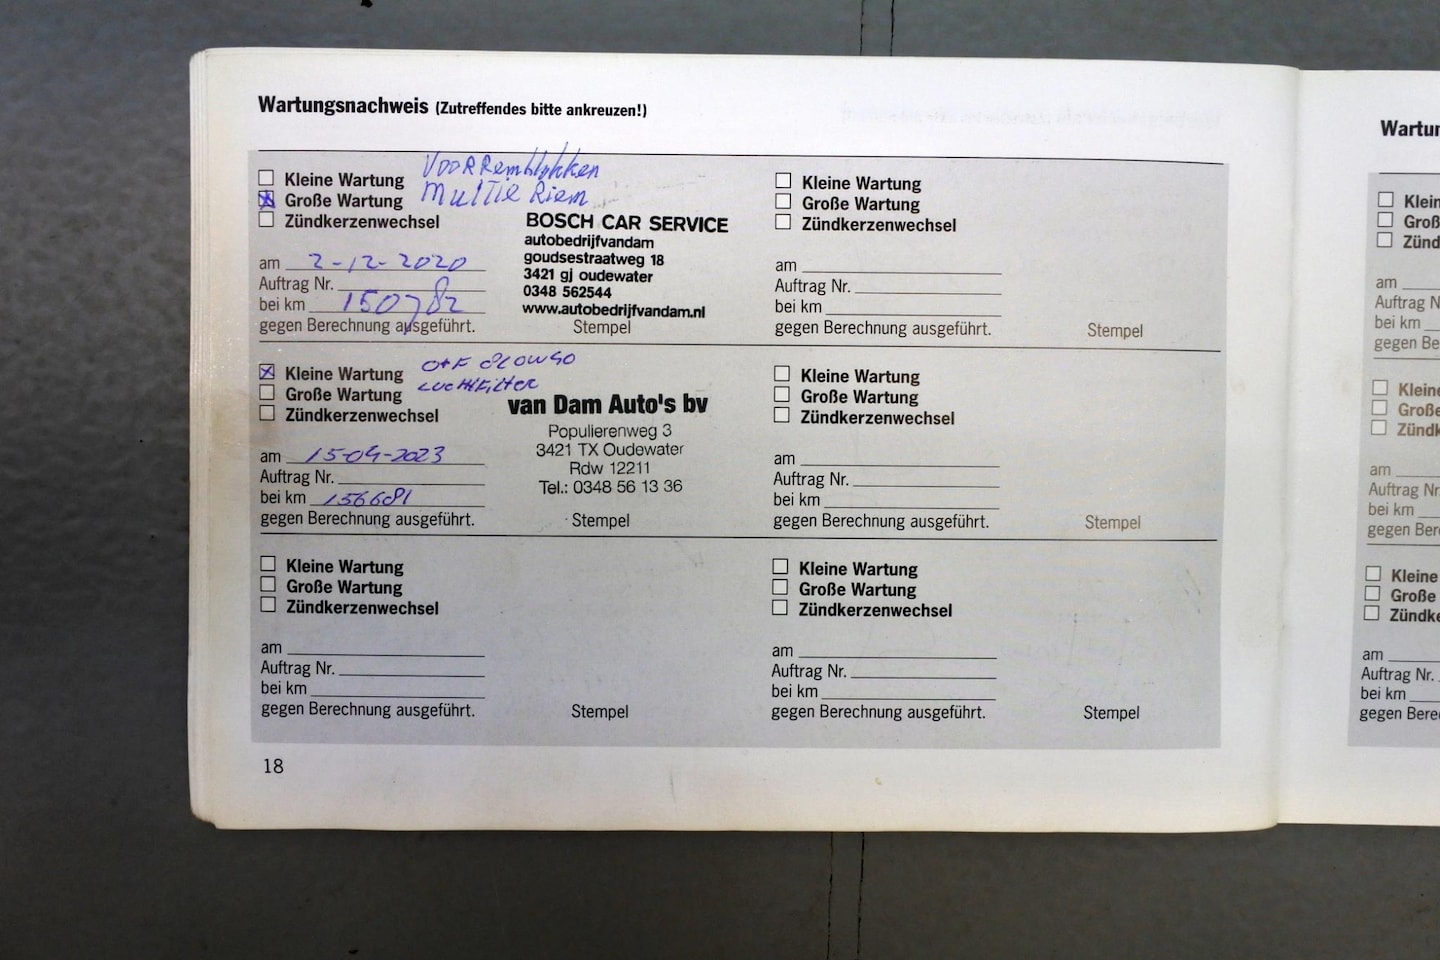 Wartungsnachweis (Zutreffendes bitte ankreuzen!)
Voorremblokken
Multie Riem
Kleine Wartung
Große Wartung
Zündkerzenwechsel
BOSCH CAR SERVICE
autobedrijfvandam
goudsestraatweg 18
3421 gj oudewater
0348 562544
www.autobedrijfvandam.nl
am 2-12-2020
Auftrag Nr.
bei km 150782
gegen Berechnung ausgeführt.
Stempel
Kleine Wartung
Große Wartung
Zündkerzenwechsel
am
Auftrag Nr.
bei km
gegen Berechnung ausgeführt.
Stempel
Luchtfilter
Kleine Wartung
Große Wartung
Zündkerzenwechsel
van Dam Auto's bv
Populierenweg 3
3421 TX Oudewater
Rdw 12211
Tel.: 0348 56 13 36
am 15-09-2023
Auftrag Nr.
bei km 156681
gegen Berechnung ausgeführt.
Stempel
Kleine Wartung
Große Wartung
Zündkerzenwechsel
am
Auftrag Nr.
bei km
gegen Berechnung ausgeführt.
Stempel
Kleine Wartung
Große Wartung
Zündkerzenwechsel
am
Auftrag Nr.
bei km
gegen Berechnung ausgeführt.
Stempel
Kleine Wartung
Große Wartung
Zündkerzenwechsel
am
Auftrag Nr.
bei km
gegen Berechnung ausgeführt.
Stempel
18
Wartun
Klein
Groß
Zünd
am
Auftrag N
bei km
gegen Be
Kleine
Große
Zündk
am
Auftrag Nr.
bei km
gegen Ber
Kleine
Große
Zündke
am
Auftrag Nr.
bei km
gegen Bere